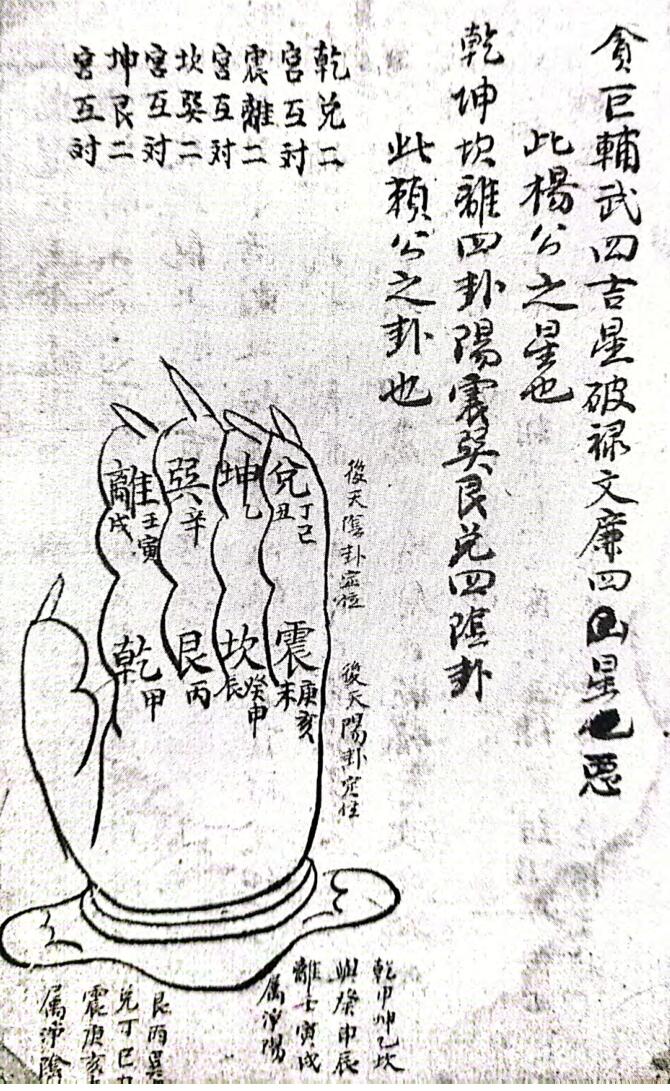 貪巨輔武四吉星破禄文廉四凶星惡
此楊公之星也
乾坤坎離四卦陽震巽艮兑四陰卦
此賴公之卦也
乾兑二
宫互对
震離二
宫互对
坎巽二
宫互对
坤艮二
宫互对
後天陰卦定位
兑丁巳丑
坤乙
巽辛
離壬寅戌
後天陽卦定位
震庚亥未
坎癸申辰
艮丙
乾甲
乾甲坤乙坎
與癸申辰
離壬寅戌
属净陽
艮丙巽
兑丁巳
震庚亥
属净陰